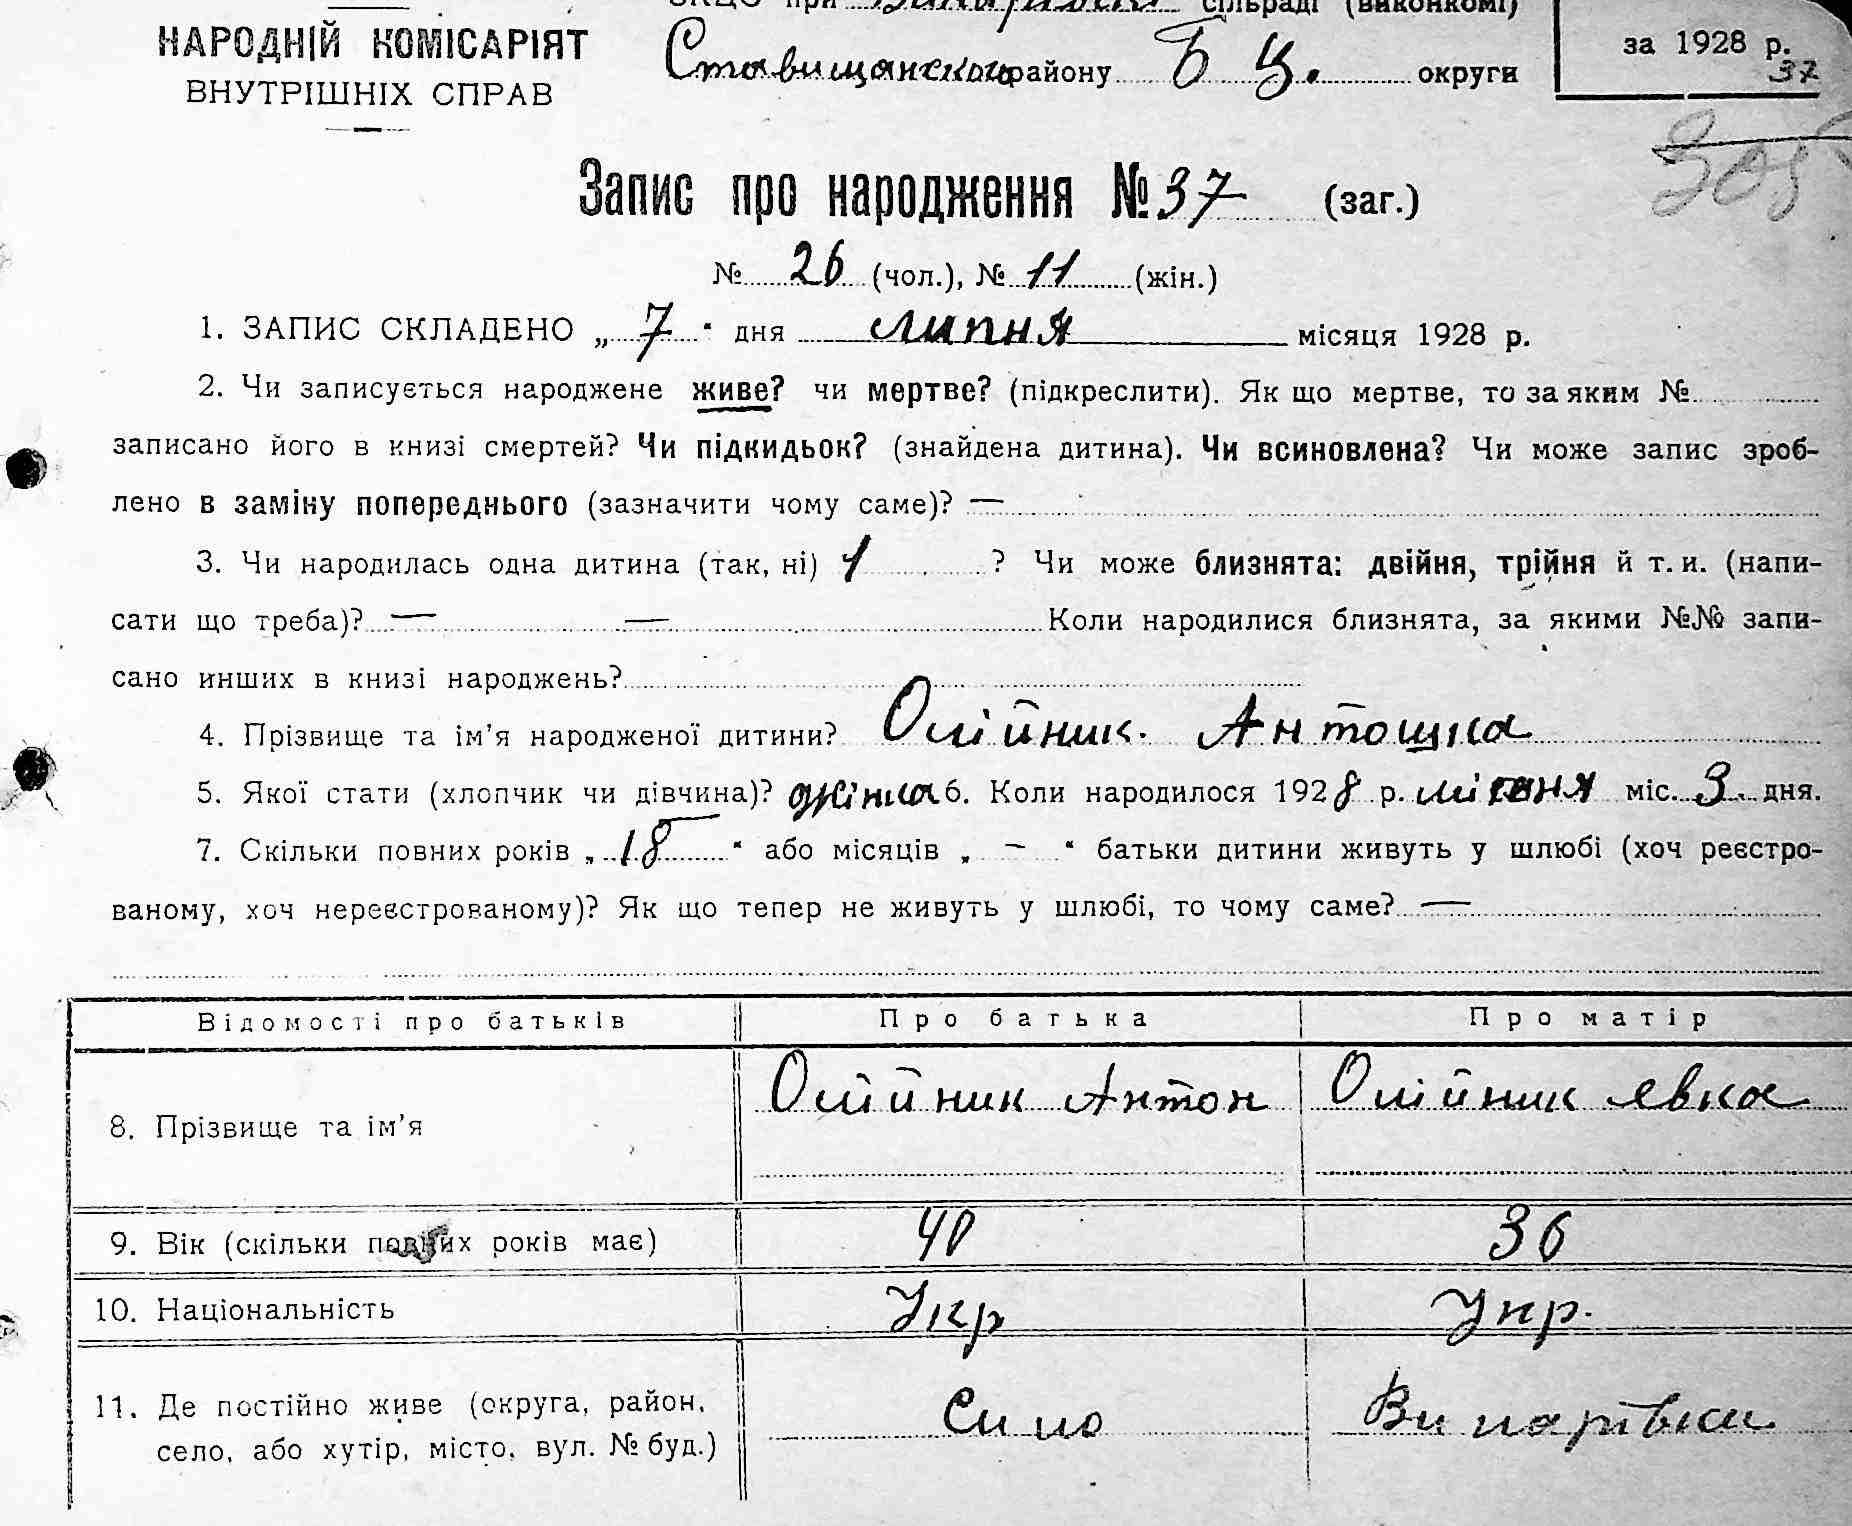 ЗКЦО при Винарівській сільраді (виконкомі)
НАРОДНІЙ КОМІСАРІЯТ
ВНУТРІШНІХ СПРАВ
Ставищанского району Б Ц. округи
за 1928 р.
37
305
Запис про народження № 37 (заг.)
№ 26 (чол.), № 11 (жін.)
1. ЗАПИС СКЛАДЕНО „7“ дня липня місяця 1928 р.
2. Чи записується народжене живе? чи мертве? (підкреслити). Як що мертве, то за яким №
записано його в книзі смертей? Чи підкидьок? (знайдена дитина). Чи всиновлена? Чи може запис зроб-
лено в заміну попереднього (зазначити чому саме)? —
3. Чи народилась одна дитина (так, ні) 1 ? Чи може близнята: двійня, трійня й т. и. (напи-
сати що треба)? — — Коли народилися близнята, за якими №№ запи-
сано инших в книзі народжень?
4. Прізвище та ім’я народженої дитини? Олійник Антошка
5. Якої статі (хлопчик чи дівчина)? жінка 6. Коли народилося 1928 р. міс. 3 дня.
7. Скільки повних років „18“ або місяців „ – “ батьки дитини живуть у шлюбі (хоч реєстро-
ваному, хоч нереєстрованому)? Як що тепер не живуть у шлюбі, то чому саме? —
Відомості про батьків Про батька Про матір
8. Прізвище та ім’я Олійник Антон Олійник Явка
9. Вік (скільки повних років має) 40 36
10. Національність Укр Укр.
11. Де постійно живе (округа, район, Село Винарівки
село, або хутір, місто, вул. № буд.)